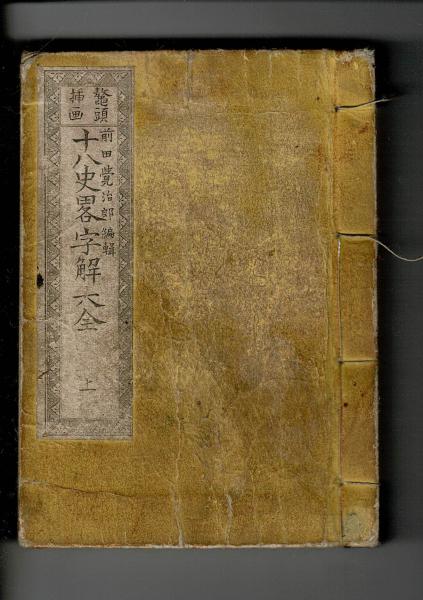 鼇頭
挿画
前田覺治郎編輯
十八史畧字解大全
上